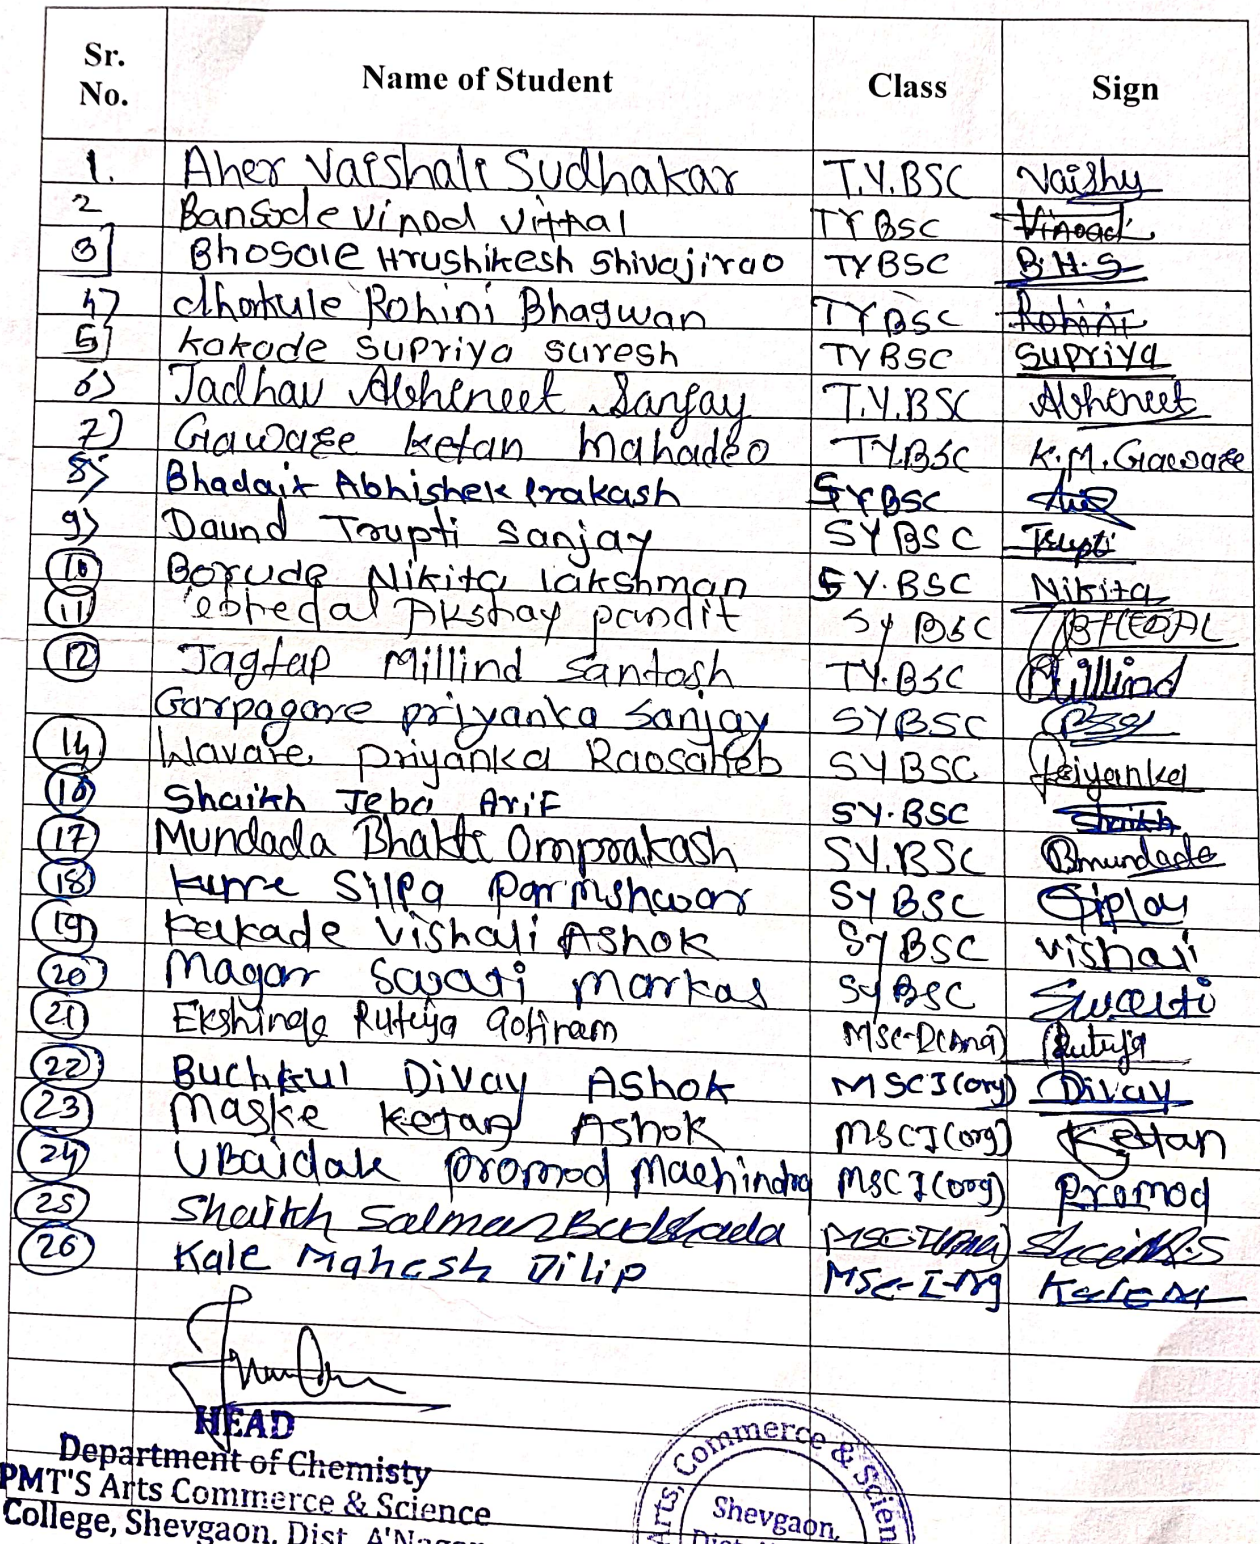 Sr. No. Name of Student Class Sign
1. Aher Vaishali Sudhakar T.Y.BSC Vaishu
2 Bansode Vinod Vitthal TYBSC Vinod
3] Bhosale Hrushikesh Shivajirao TYBSC B.H.S
4) dhakule Rohini Bhagwan TYBSC Rohini
5] Kakade Supriya Suresh TYBSC Supriya
6) Jadhav Abhineet Sanjay T.Y.BSC Abhineet
7) Gawaee Ketan Mahadeo TY.BSC K.M.Gawaee
8) Bhadait Abhishek Prakash SYBSC
9) Daund Trupti Sanjay SYBSC Trupti
10 Borude Nikita lakshman SY.BSC Nikita
11 Akshay pandit Sy BSC
12 Jagtap Millind Santosh TY.BSC Millind
Garpagare priyanka Sanjay SYBSC
14 Wavare Priyanka Raosaheb SYBSC Priyanka
16 Shaikh Jeba Arif SY.BSC Shaikh
17 Mundada Bhakti Omprakash SY.BSC Bmundada
18 Silpa Parmshwar SYBSC
19 Kakade Vishali Ashok SyBSC vishali
20 Magar Swati Markas SyBSC Swati
21 Ekshinge Rutuja Gotiram Rutuja
22 Buchkul Divay Ashok MSCI(org) Divay
23 Maske Ketan Ashok MSCI(org) Ketan
24 UBaidak Promod Machindra MSCI(org) Promod
25 Shaikh Salman Shaikh.S
26 Kale Mahesh Dilip
HEAD
Department of Chemisty
PMT'S Arts Commerce & Science
College, Shevgaon, Dist
Arts, Commerce & Scien
Shevgaon,